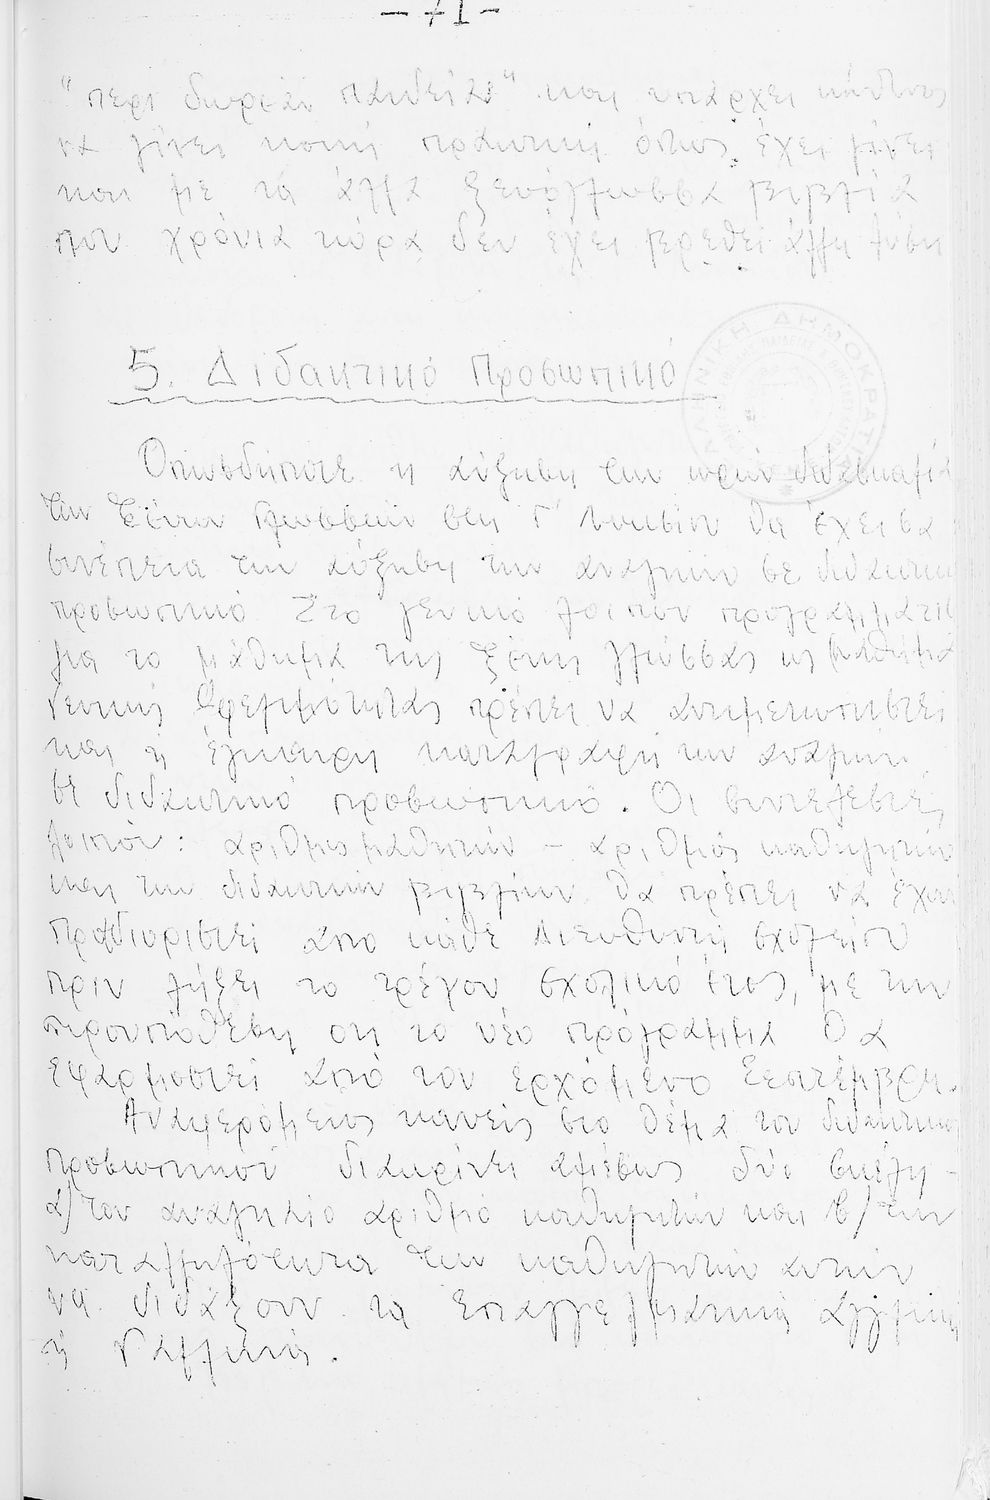 - 71 -
"περι δωρεάν παιδείας" και υπάρχει κίνδυνος
να γίνει κοινή πρακτική όπως έχει γίνει
και με τα άλλα ξενόγλωσσα βιβλία
που χρόνια τώρα δεν έχει βρεθεί άλλη λύση
5. Διδακτικό Προσωπικό
ΕΛΛΗΝΙΚΗ ΔΗΜΟΚΡΑΤΙΑ
Οπωσδήποτε η αύξηση των ωρών διδασκαλία
των Ξένων Γλωσσών στη Γ' Λυκείου θα έχει σα
συνέπεια την αύξηση των αναγκών σε διδακτικό
προσωπικό Στο γενικό λοιπόν προγραμματισ
για το μάθημα της ξένης γλώσσας ως μαθήμα
Γενικής πρέπει να αντιμετωπιστεί
και η έγκαιρη καταγραφή των αναγκών
σε διδακτικό προσωπικό. Οι συντελεστές
λοιπόν: αριθμός μαθητών - αριθμός καθηγητών
και των διδακτικών βιβλίων θα πρέπει να έχουν
προσδιοριστεί απο κάθε Διευθυντή σχολείου
πριν λήξει το τρέχον σχολικό έτος, με την
προυπόθεση οτι το νέο πρόγραμμα θα
εφαρμοστεί από τον ερχόμενο Σεπτέμβρη.
Αναφερόμενος κανείς στο θέμα του διδακτικού
προσωπικού διακρίνει αμέσως δύο σκέλη -
α) τον αναγκαίο αριθμό καθηγητών και β) την
καταλληλότητα των καθηγητών αυτών
να διδάξουν τα Επαγγελματικά Αγγλικά
ή Γαλλικά.